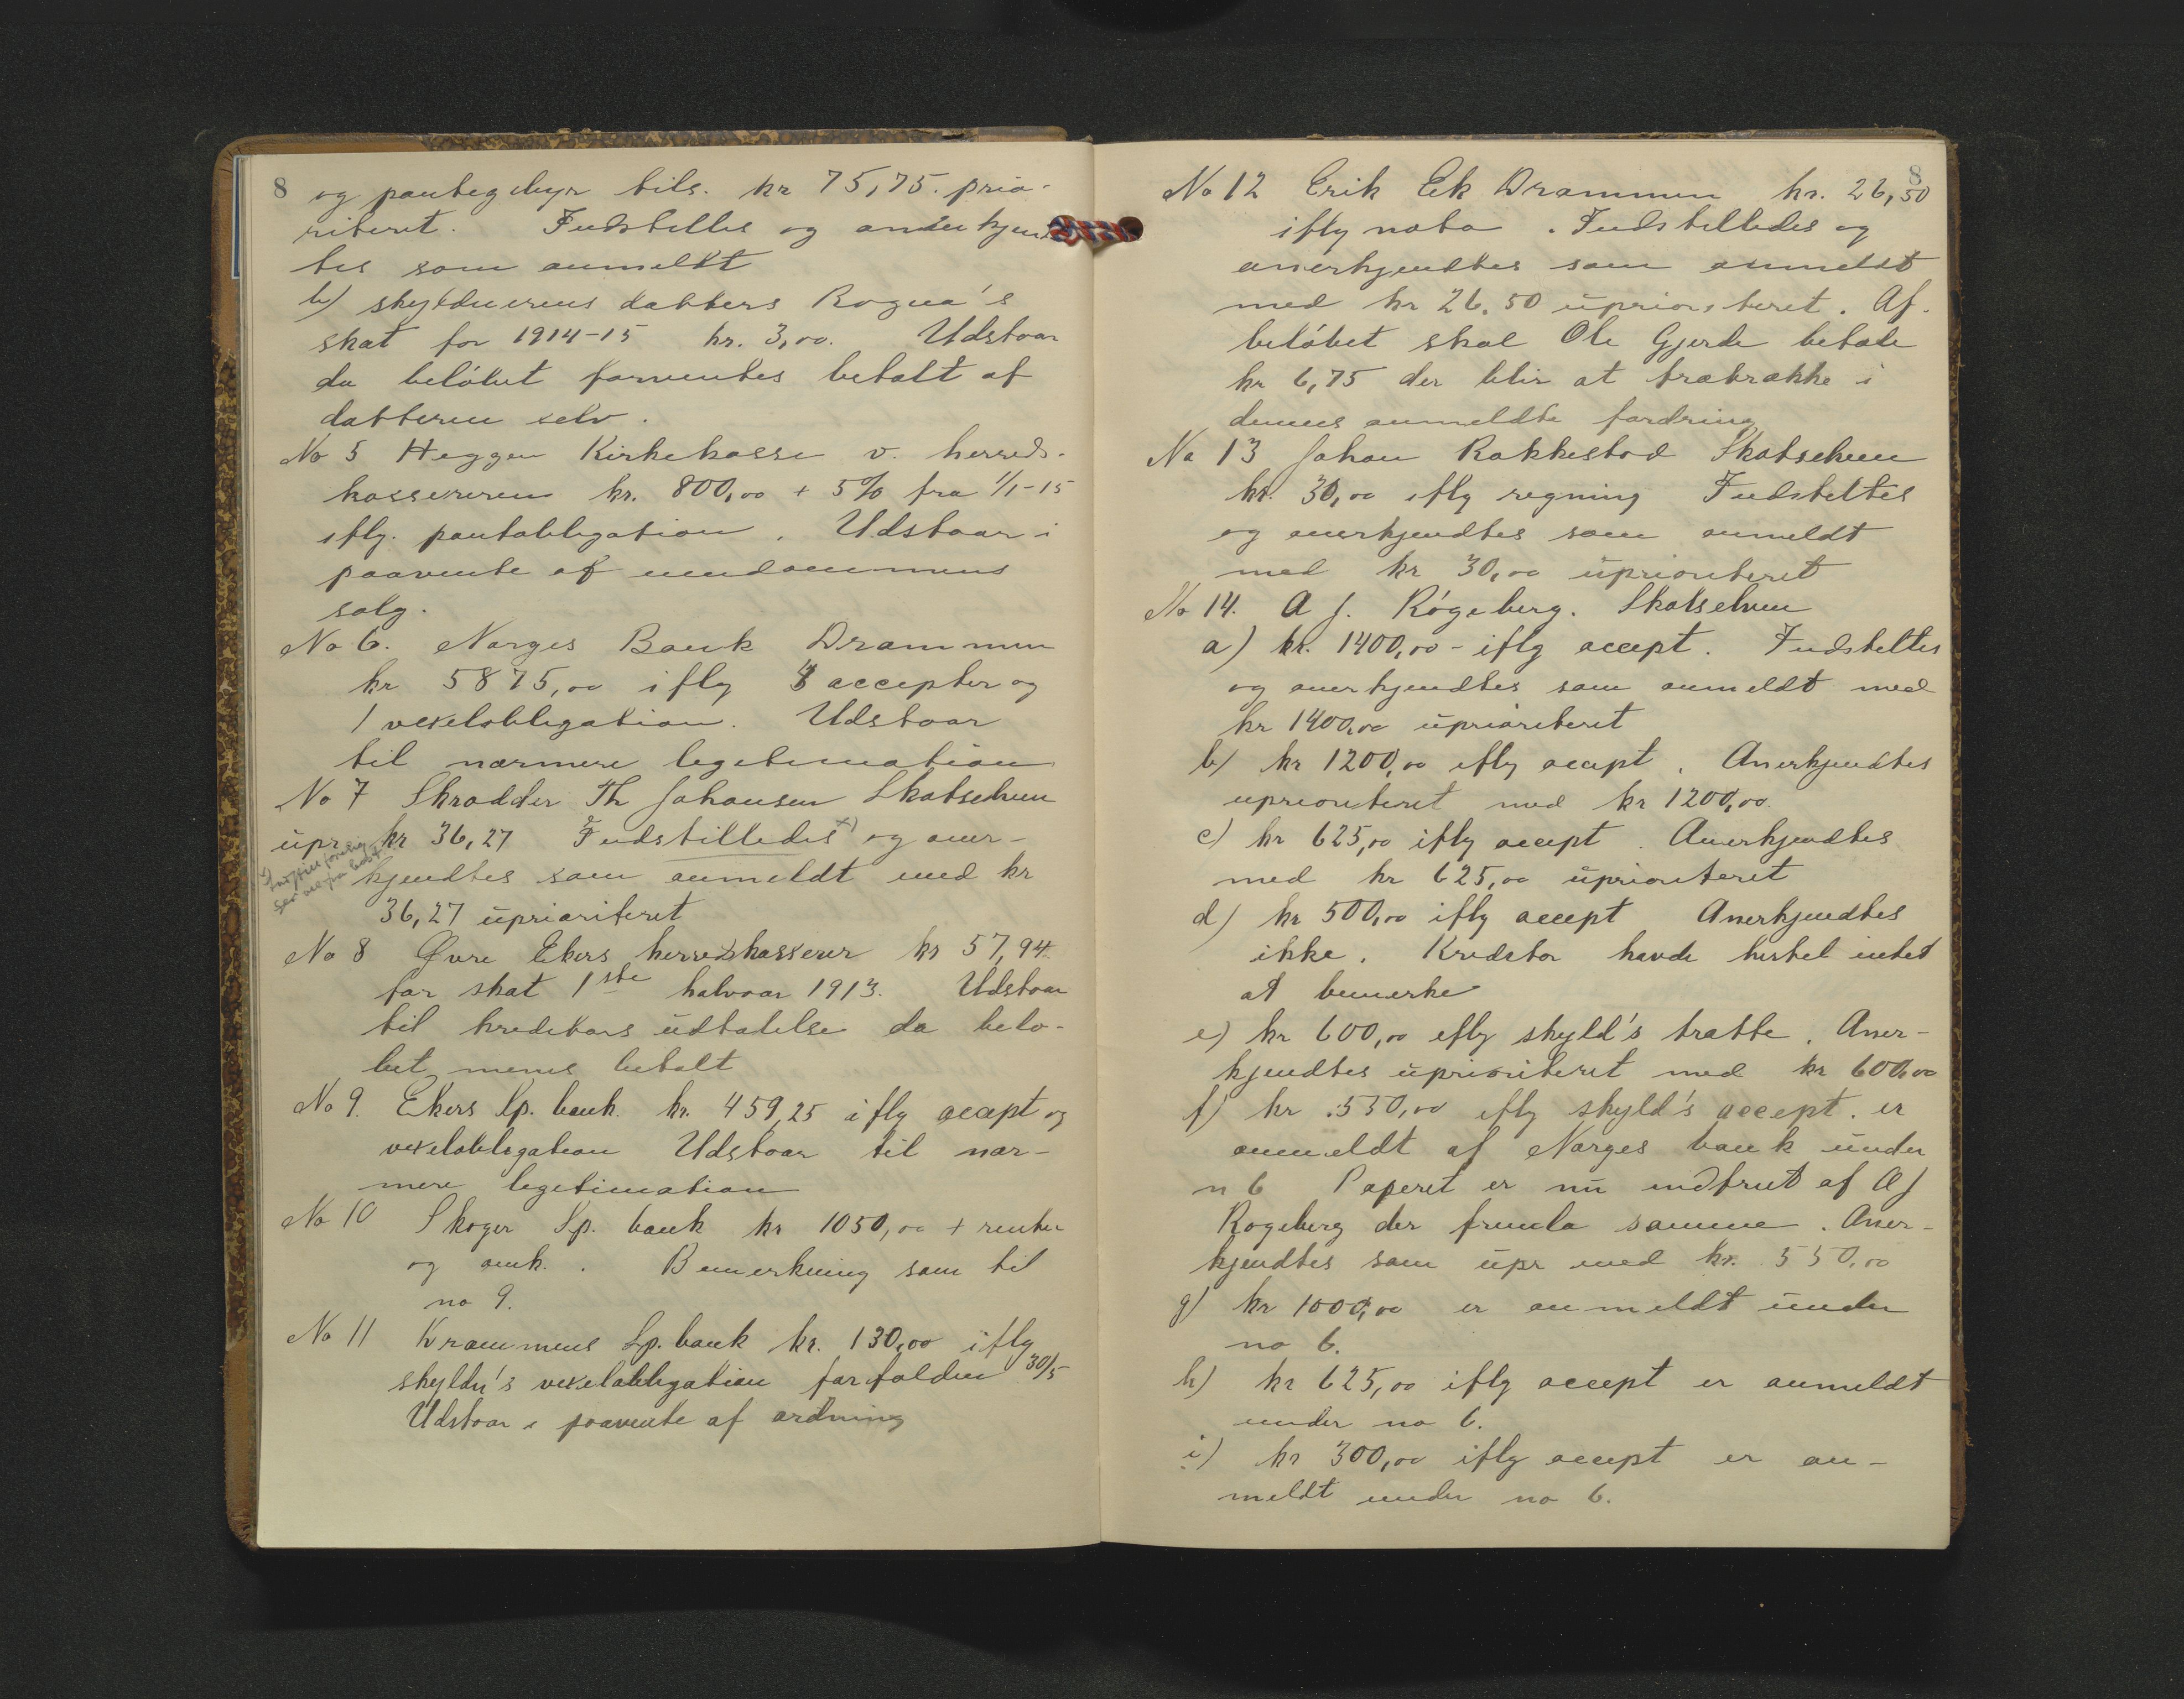 8 og pantegebyr tils. kr 75,75. prio-
riteret. Indstilles og anerkjend
tes som anmeldt
b) skyldnerens datters Rogna's
skat for 1914-15 kr. 3,00. Udstaar
da beløbet forventes betalt af
datteren selv.
No 5 Heggen Kirkekasse v. herreds-
kassereren kr. 800,00 + 5% fra 1/1-15
iflg. pantobligation. Udstaar i
paavente af eiendommens
salg.
No 6. Norges Bank Drammen
kr 5875,00 iflg accepter og
1 vexelobligation. Udstaar
til nærmere legitimation
No 7 Skrædder Th Johansen Skotselven
upr kr 36,27 Indstilledes x) og aner-
kjendtes som anmeldt med kr
36,27 uprioriteret
No 8 Øvre Ekers herredskasserer kr 57,94.
for skat 1ste halvaar 1913. Udstaar
til kreditors udtalelse da belø-
bet menes betalt
No 9. Ekers Sp. bank. kr. 459,25 iflg accept og
vexelobligation Udstaar til nær-
mere legitimation
No 10 Skoger Sp. bank kr 1050,00 + renter
og omk. . Bemerkning som til
no 9.
No 11 Drammens Sp. bank kr. 130,00 iflg
skyldn's vexelobligation forfalden 30/5
Udstaar i paavente af ordning
8
No 12 Erik Ek Drammen kr. 26,50
iflg nota . Indstilledes og
anerkjendtes som anmeldt
med kr 26.50 uprioriteret. Af
beløbet skal Ole Gjerde betale
kr 6,75 der blir at fratrække i
dennes anmeldte fordring
No 13 Johan Rakkestad Skotselven
kr. 30,00 iflg regning Indstilles
og anerkjendtes som anmeldt
med kr 30,00 uprioriteret
No 14. A J. Røgeberg. Skotselven
a) kr. 1400,00 - iflg accept. Indstilles
og anerkjendtes som anmeldt med
kr 1400,00 uprioriteret
b) kr 1200,00 iflg accept . Anerkjendtes
uprioriteret med kr 1200,00.
c) kr 625,00 iflg accept . Anerkjendtes
med kr 625,00 uprioriteret
d) kr 500,00 iflg accept Anerkjendtes
ikke. Kreditor havde hertil intet
at bemerke
e) kr 600,00 iflg skyld's tratte. Aner-
kjendtes uprioriteret med kr 600,00
f) kr 550,00 iflg skyld's accept. er
anmeldt af Norges bank under
n 6 Papiret er nu indfriet af A J
Rogeberg der fremla samme. Aner-
kjendtes som upr med kr. 550,00
g) kr 1000,00 er anmeldt under
no 6.
h) kr 625,00 iflg accept er anmeldt
under no 6.
i) kr 300,00 iflg accept er an-
meldt under no 6.